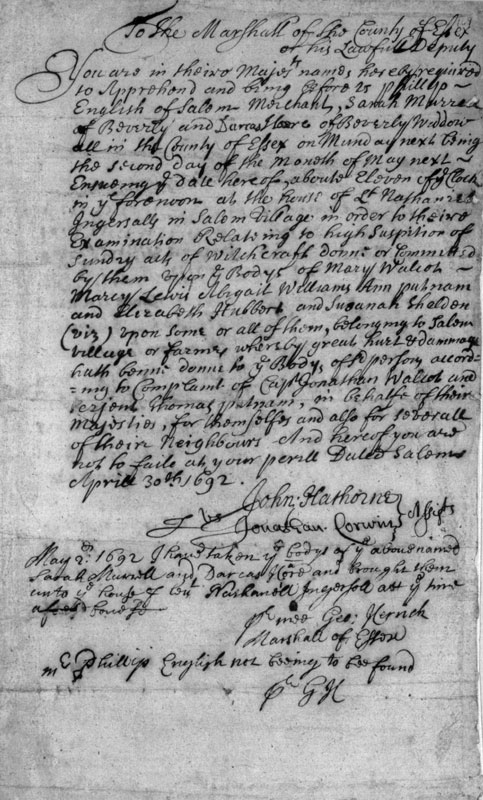 To the Marshall of the County of Essex
or his Lawfull Deputy
You are in theire Majests names hereby required
to Apprehend and bring before us phillip
English of Salem Merchant, Sarah Murrell
of Beverly and Darcas Hoare of Beverly Widdow
all in the County of Essex on Munday next being
the second day of the Moneth of May next
Ensueing ye date hereof, aboute Eleven of ye Clock
in ye forenoon at the house of Lt Nathaniell
Ingersalls in Salem Village in order to theire
Examination Relateing to high Suspition of
Sundry acts of Witchcraft donne or Committed
by them upon ye Bodys of Mary Walcot
Marcy Lewis Abigail Williams Ann putnam
and Elizabeth Hubbert and Susanah Shelden
(viz) upon some or all of them, belonging to Salem
village or farmes whereby great hurt & dammage
hath benne donne to ye Bodys of sd persons accord=
=ing to Complaint of Capt Jonathan Walcot and
Serjent Thomas putnam, in behalfe of their
Majesties, for themselfes and also for severall
of their Neighbours And hereof you are
not to faile at your perill Dated Salem
Aprill 30th 1692.
John Hathorne
Jonathan Corwin Assists
May 2d 1692 I have taken ye bodys of ye above named
Sarah Murrell and Darcas Hoare and brought them
unto ye house of leut Nathaniell Ingersoll att ye time
pr mee Geo: Herrick
Marshall of Essex
mr Phillip English not being to bee found
pr G H